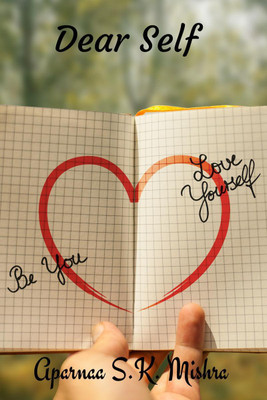 Dear Self
Love
Yourself
Be You
Aparnaa S.K. Mishra